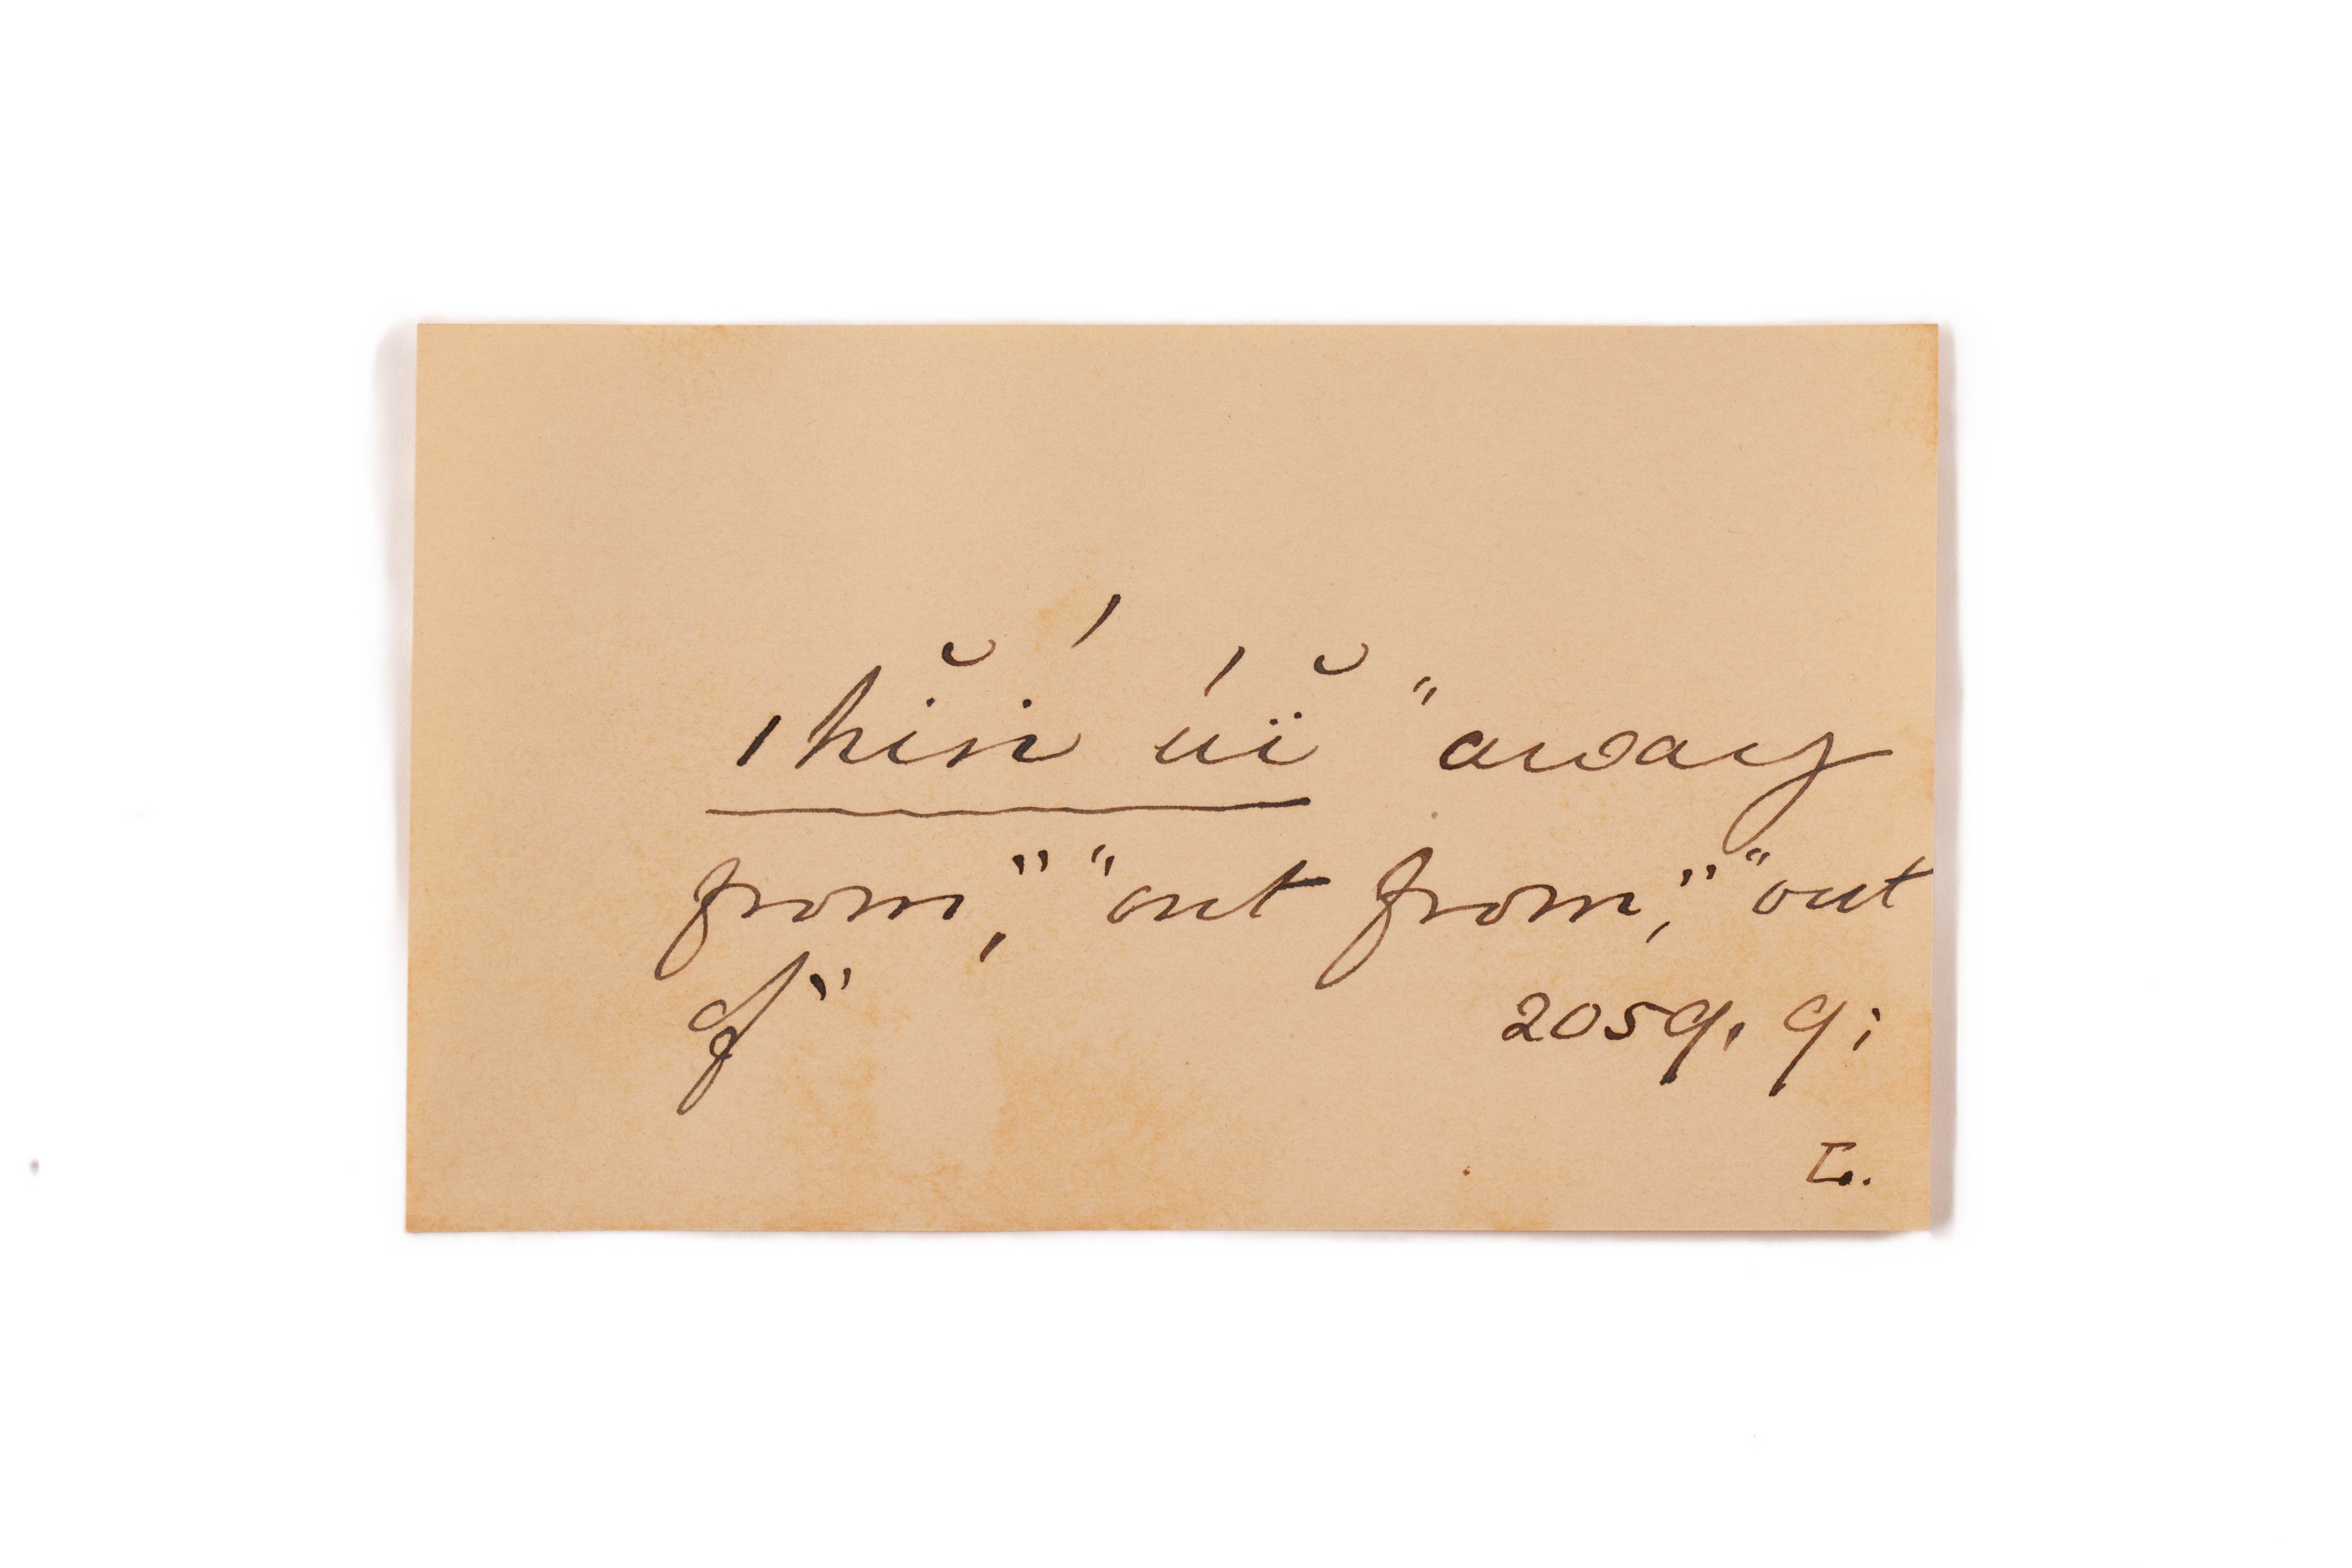 ǀhĭṅ́ úï̆ "away
from," "out from," "out
of" 2059. 9;
L.